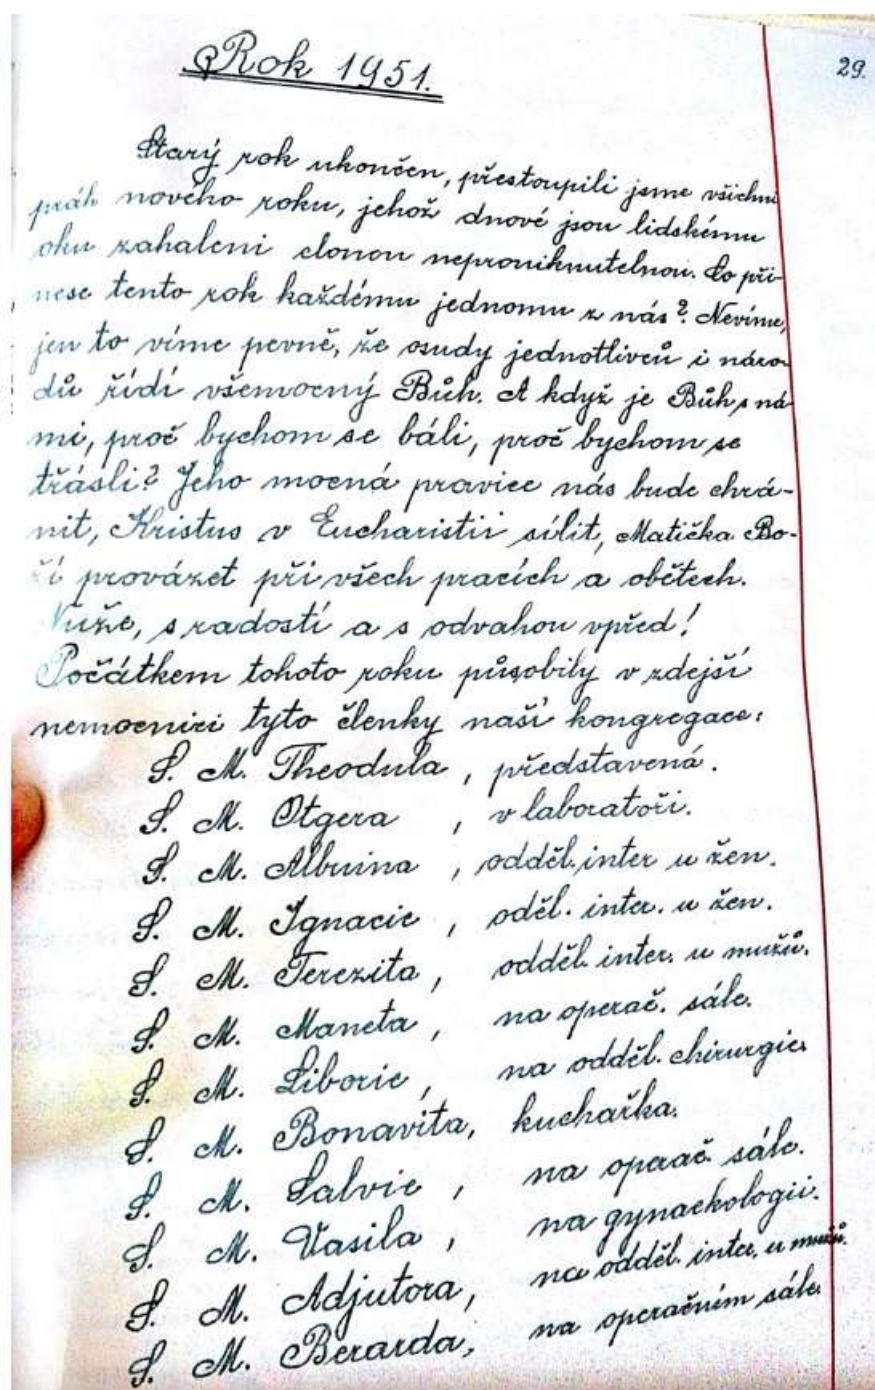 Rok 1951.
29.
Starý rok ukončen, přestoupili jsme všichni
práh nového roku, jehož dnové jsou lidskému
oku zahaleni clonou neproniknutelnou. Co při-
nese tento rok každému jednomu z nás? Nevíme,
jen to víme pevně, že osudy jednotlivců i náro-
dů řídí všemocný Bůh. A když je Bůh s ná-
mi, proč bychom se báli, proč bychom se
třásli? Jeho mocná pravice nás bude chrá-
nit, Kristus v Eucharistii sílit, Matička Bo-
ží provázet při všech pracích a obětech.
Nuže, s radostí a s odvahou vpřed!
Počátkem tohoto roku působily v zdejší
nemocnici tyto členky naší kongregace:
S. M. Theodula, představená.
S. M. Otgera, v laboratoři.
S. M. Albuina, odděl. inter u žen.
S. M. Ignacie, oděl. inter. u žen.
S. M. Terezita, odděl. inter. u mužů.
S. M. Maneta, na operač. sále.
S. M. Liborie, na odděl. chirurgie.
S. M. Bonavita, kuchařka.
S. M. Salvie, na operač. sále.
S. M. Vasila, na gynaekologii.
S. M. Adjutora, na odděl. inter. u mužů.
S. M. Berarda, na operačním sále.